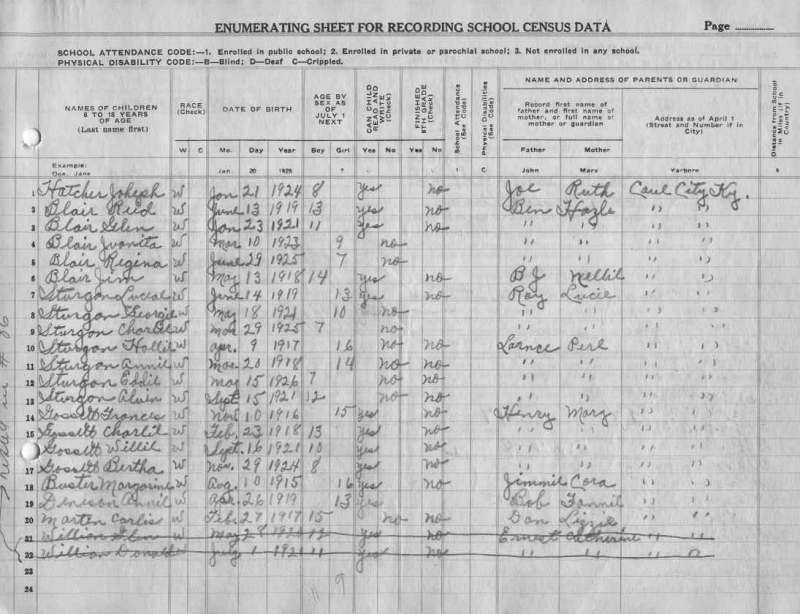 ENUMERATING SHEET FOR RECORDING SCHOOL CENSUS DATA Page
SCHOOL ATTENDANCE CODE:—1. Enrolled in public school; 2. Enrolled in private or parochial school; 3. Not enrolled in any school.
PHYSICAL DISABILITY CODE:—B—Blind; D—Deaf C—Crippled.
NAMES OF CHILDREN 6 to 18 YEARS OF AGE (Last name first) RACE (Check) DATE OF BIRTH AGE BY SEX AS OF JULY 1 NEXT CAN CHILD READ AND WRITE (Check) FINISHED 8TH GRADE (Check) School Attendance (See Code) Physical Disabilities (See Code) NAME AND ADDRESS OF PARENTS OR GUARDIAN Distance from School in Miles (if in Country)
Record first name of father and first name of mother, or full name of mother or guardian Address as of April 1 (Street and Number if in City)
W C Mo. Day Year Boy Girl Yes No Yes No Father Mother
Example: Doe, Jane Jan. 20 1925 John Mary
1 Hatcher Joseph W Jan 21 1924 8 yes no Joe Ruth Cave City Ky.
2 Blair Reid W June 13 1919 13 yes no Ben Hazle " "
3 Blair Glen W Jan 23 1921 11 yes no " " " "
4 Blair Juanita W Mar 10 1923 9 no " " " "
5 Blair Regina W June 29 1925 7 no " " " "
6 Blair Jim W May 13 1918 14 yes no B J Nellie " "
7 Sturgon W June 14 1919 13 yes no Roy Lucie " "
8 Sturgon Georgie W May 18 1921 10 no " " " "
9 Sturgon Charles W Mar 29 1925 7 no " " " "
10 Sturgon Hollie W apr. 9 1917 16 no no Larnce Perl " "
11 Sturgon Annie W Mar 20 1918 14 no no " " " "
12 Sturgon Eddie W may 15 1926 7 no no " " " "
13 Sturgon Alvin W Sept 15 1921 12 no no " " " "
14 Gossett Frances W Nov. 10 1916 15 yes no Henry Mary " "
15 Gossett Charlie W Feb. 23 1918 13 yes no " " " "
16 Gossett Willie W Sept. 16 1921 10 yes no " " " "
17 Gossett Bertha W Nov. 29 1924 8 yes no " " " "
18 Buster Margorine W Aug. 10 1915 16 yes no Jimmie Cora " "
19 Denison Annie W apr. 26 1919 13 yes Bob Fannie " "
20 Marten Carlis W Feb. 27 1917 15 no no Don Lizzie " "
21 William Glen W May 28 12 yes no Ernest Catherine " "
22 William Donald W July 1 1921 11 yes no " " " "
23
24 11 9